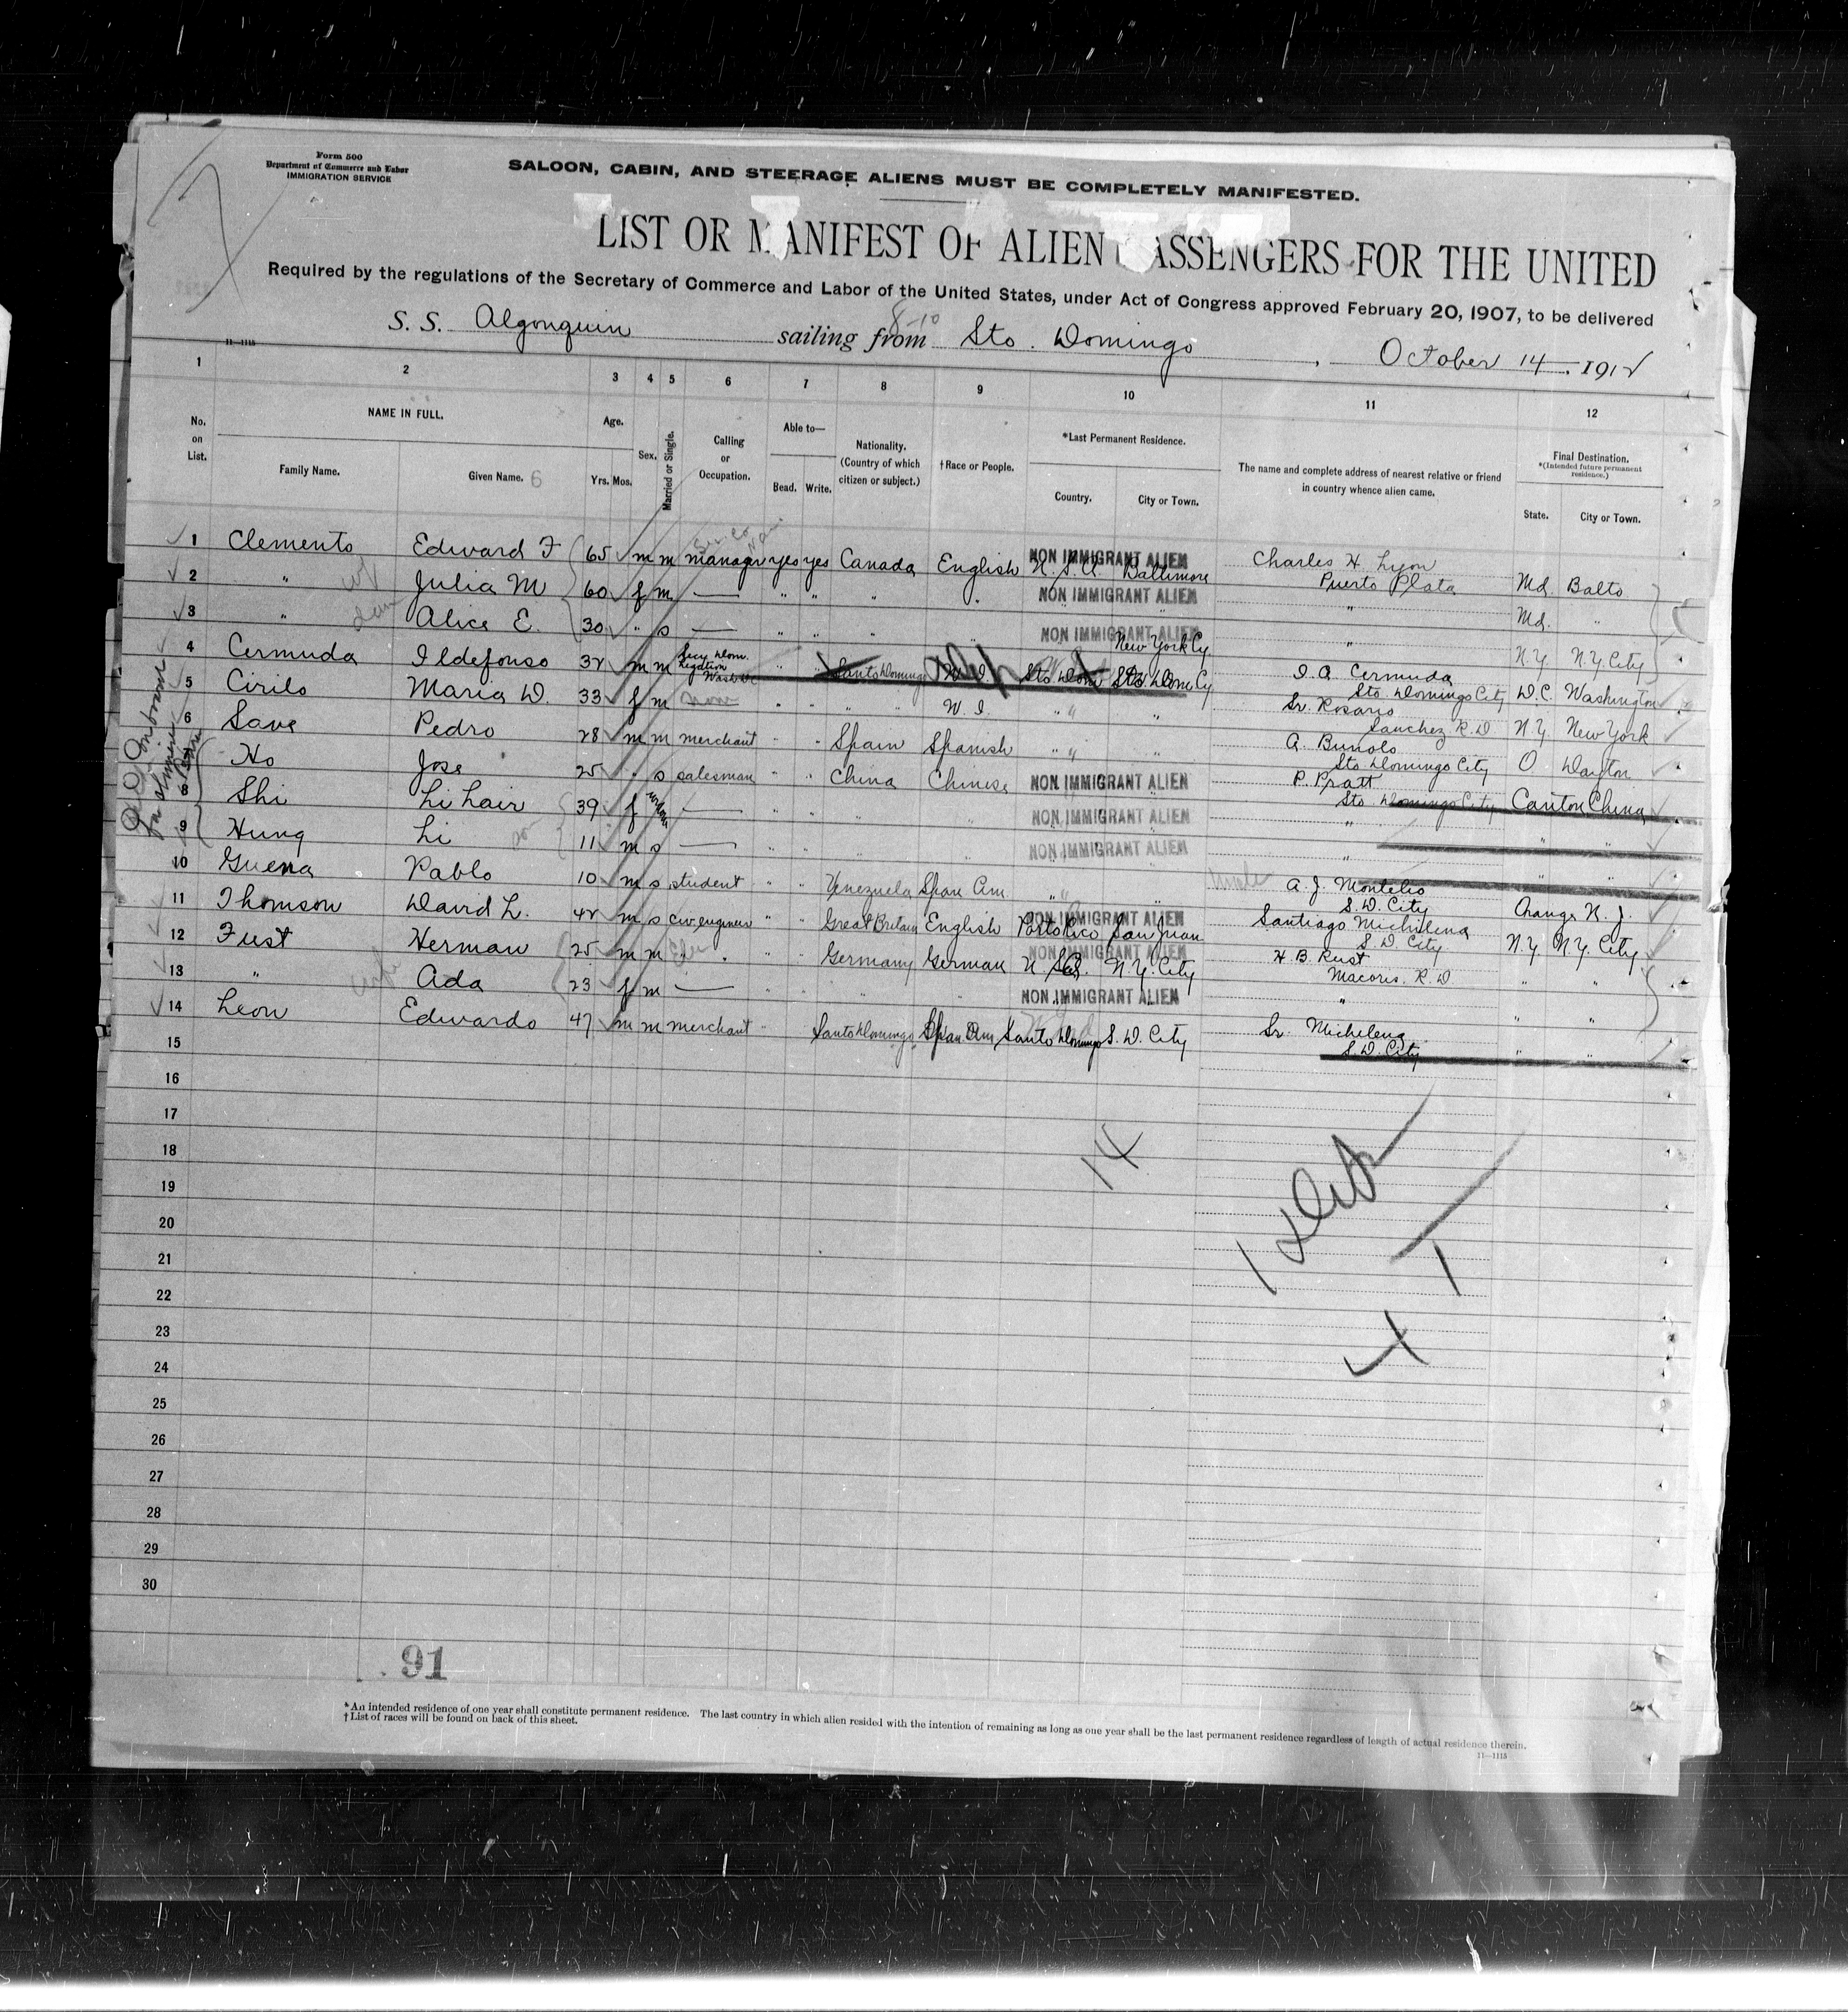 Form 500
Department of Commerce and Labor
IMMIGRATION SERVICE
SALOON, CABIN, AND STEERAGE ALIENS MUST BE COMPLETELY MANIFESTED.
LIST OR MANIFEST OF ALIEN PASSENGERS FOR THE UNITED
Required by the regulations of the Secretary of Commerce and Labor of the United States, under Act of Congress approved February 20, 1907, to be delivered
S. S. Algonquin sailing from Sto. Domingo, October 14, 1912
11—1115
1 2 3 4 5 6 7 8 9 10 11 12
No. on List. NAME IN FULL. Age. Sex. Married or Single. Calling or Occupation. Able to— Nationality. (Country of which citizen or subject.) †Race or People. *Last Permanent Residence. The name and complete address of nearest relative or friend in country whence alien came. Final Destination. *(Intended future permanent residence.)
Family Name. Given Name. 6 Yrs. Mos. Read. Write. Country. City or Town. State. City or Town.
1 Clements Edward F 65 m m manager yes yes Canada English NON IMMIGRANT ALIEN U.S.A. Baltimore Charles H Lyon Puerto Plata Md. Balto
2 " Julia M 60 f m — " " " " NON IMMIGRANT ALIEN " Md. "
3 " Alice E. 30 " s — " " " NON IMMIGRANT ALIEN " N.Y. N.Y. City
4 Cermuda Ildefonso 32 m m Secy Dom. Legation Wash. DC " " Santo Domingo W. I. Sto Dom New York Cy Sto Dom Cy I. A. Cermuda Sto. Domingo City D.C. Washington
5 Cirilo Maria D. 33 f m none " " " " W. I. " " Sr. Rosario Sanchez R.D N.Y. New York
6 Save Pedro 28 m m merchant " " Spain Spanish " " A. Bunolo Sto Domingo City O. Dayton
7 Ho Jose 25 " s salesman " " China Chinese NON IMMIGRANT ALIEN P. Pratt Sto. Domingo City Canton China
8 Shi Li Lair 39 f — " " " " NON IMMIGRANT ALIEN " " "
9 Hung Li 11 m s — " " " " NON IMMIGRANT ALIEN " " "
10 Guerra Pablo 10 m s student " " Venezuela Span Am " " uncle A. J. Montelio S.D. City Orange N. J.
11 Thomson David L. 42 m s civ. engineer " " Great Britain English NON IMMIGRANT ALIEN Porto Rico San Juan Santiago Michelena S. D. City N.Y. N.Y. City
12 Fust Herman 25 m m " " " " Germany German NON IMMIGRANT ALIEN U.S. N.Y. City H B Rust Macoris. R. D. " "
13 " wife Ada 23 f m — " " " " NON IMMIGRANT ALIEN " " "
14 Leon Edwardo 47 m m merchant " Santo Domingo Span Am Santo Domingo S. D. City Sr. Michelena S. D. City " "
15
16
17
18
19
20
21
22
23
24
25
26
27
28
29
30
14
91
*An intended residence of one year shall constitute permanent residence. The last country in which alien resided with the intention of remaining as long as one year shall be the last permanent residence regardless of length of actual residence therein.
†List of races will be found on back of this sheet.
11—1115